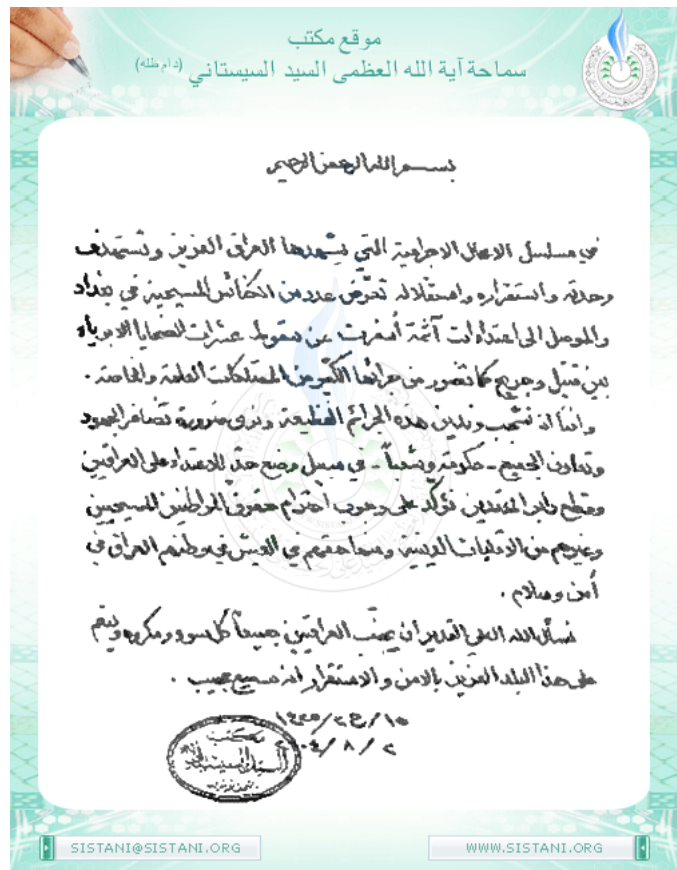 موقع مكتب
سماحة آية الله العظمى السيد السيستاني (دام ظله)
بسم الله الرحمن الرحيم
في مسلسل الاعمال الاجرامية التي يشهدها العراق العزيز وتستهدف
وحدته واستقراره واستقلاله تعرّض عدد من الكنائس المسيحية في بغداد
والموصل الى اعتداءات آثمة أسفرت عن سقوط عشرات الضحايا الابرياء
بين قتيل وجريح كما تضرر من جرائها الكثير من الممتلكات العامة والخاصة .
واننا اذ نشجب وندين هذه الجرائم الفظيعة ونرى ضرورة تضافر الجهود
وتعاون الجميع - حكومة وشعباً - في سبيل وضع حدّ للاعتداء على العراقيين
وقطع دابر المعتدين نؤكّد على وجوب احترام حقوق المواطنين المسيحيين
وغيرهم من الأقليات الدينية ومنها حقهم في العيش في وطنهم العراق في
أمن وسلام .
نسأل الله العلي القدير ان يجنّب العراقيين جميعاً كل سوء ومكروه وينعم
على هذا البلد العزيز بالامن والاستقرار انه سميع مجيب .
١٥/ج٢/١٤٢٥
٢/٨/
مكتب
السيد السيستاني
SISTANI@SISTANI.ORG
WWW.SISTANI.ORG